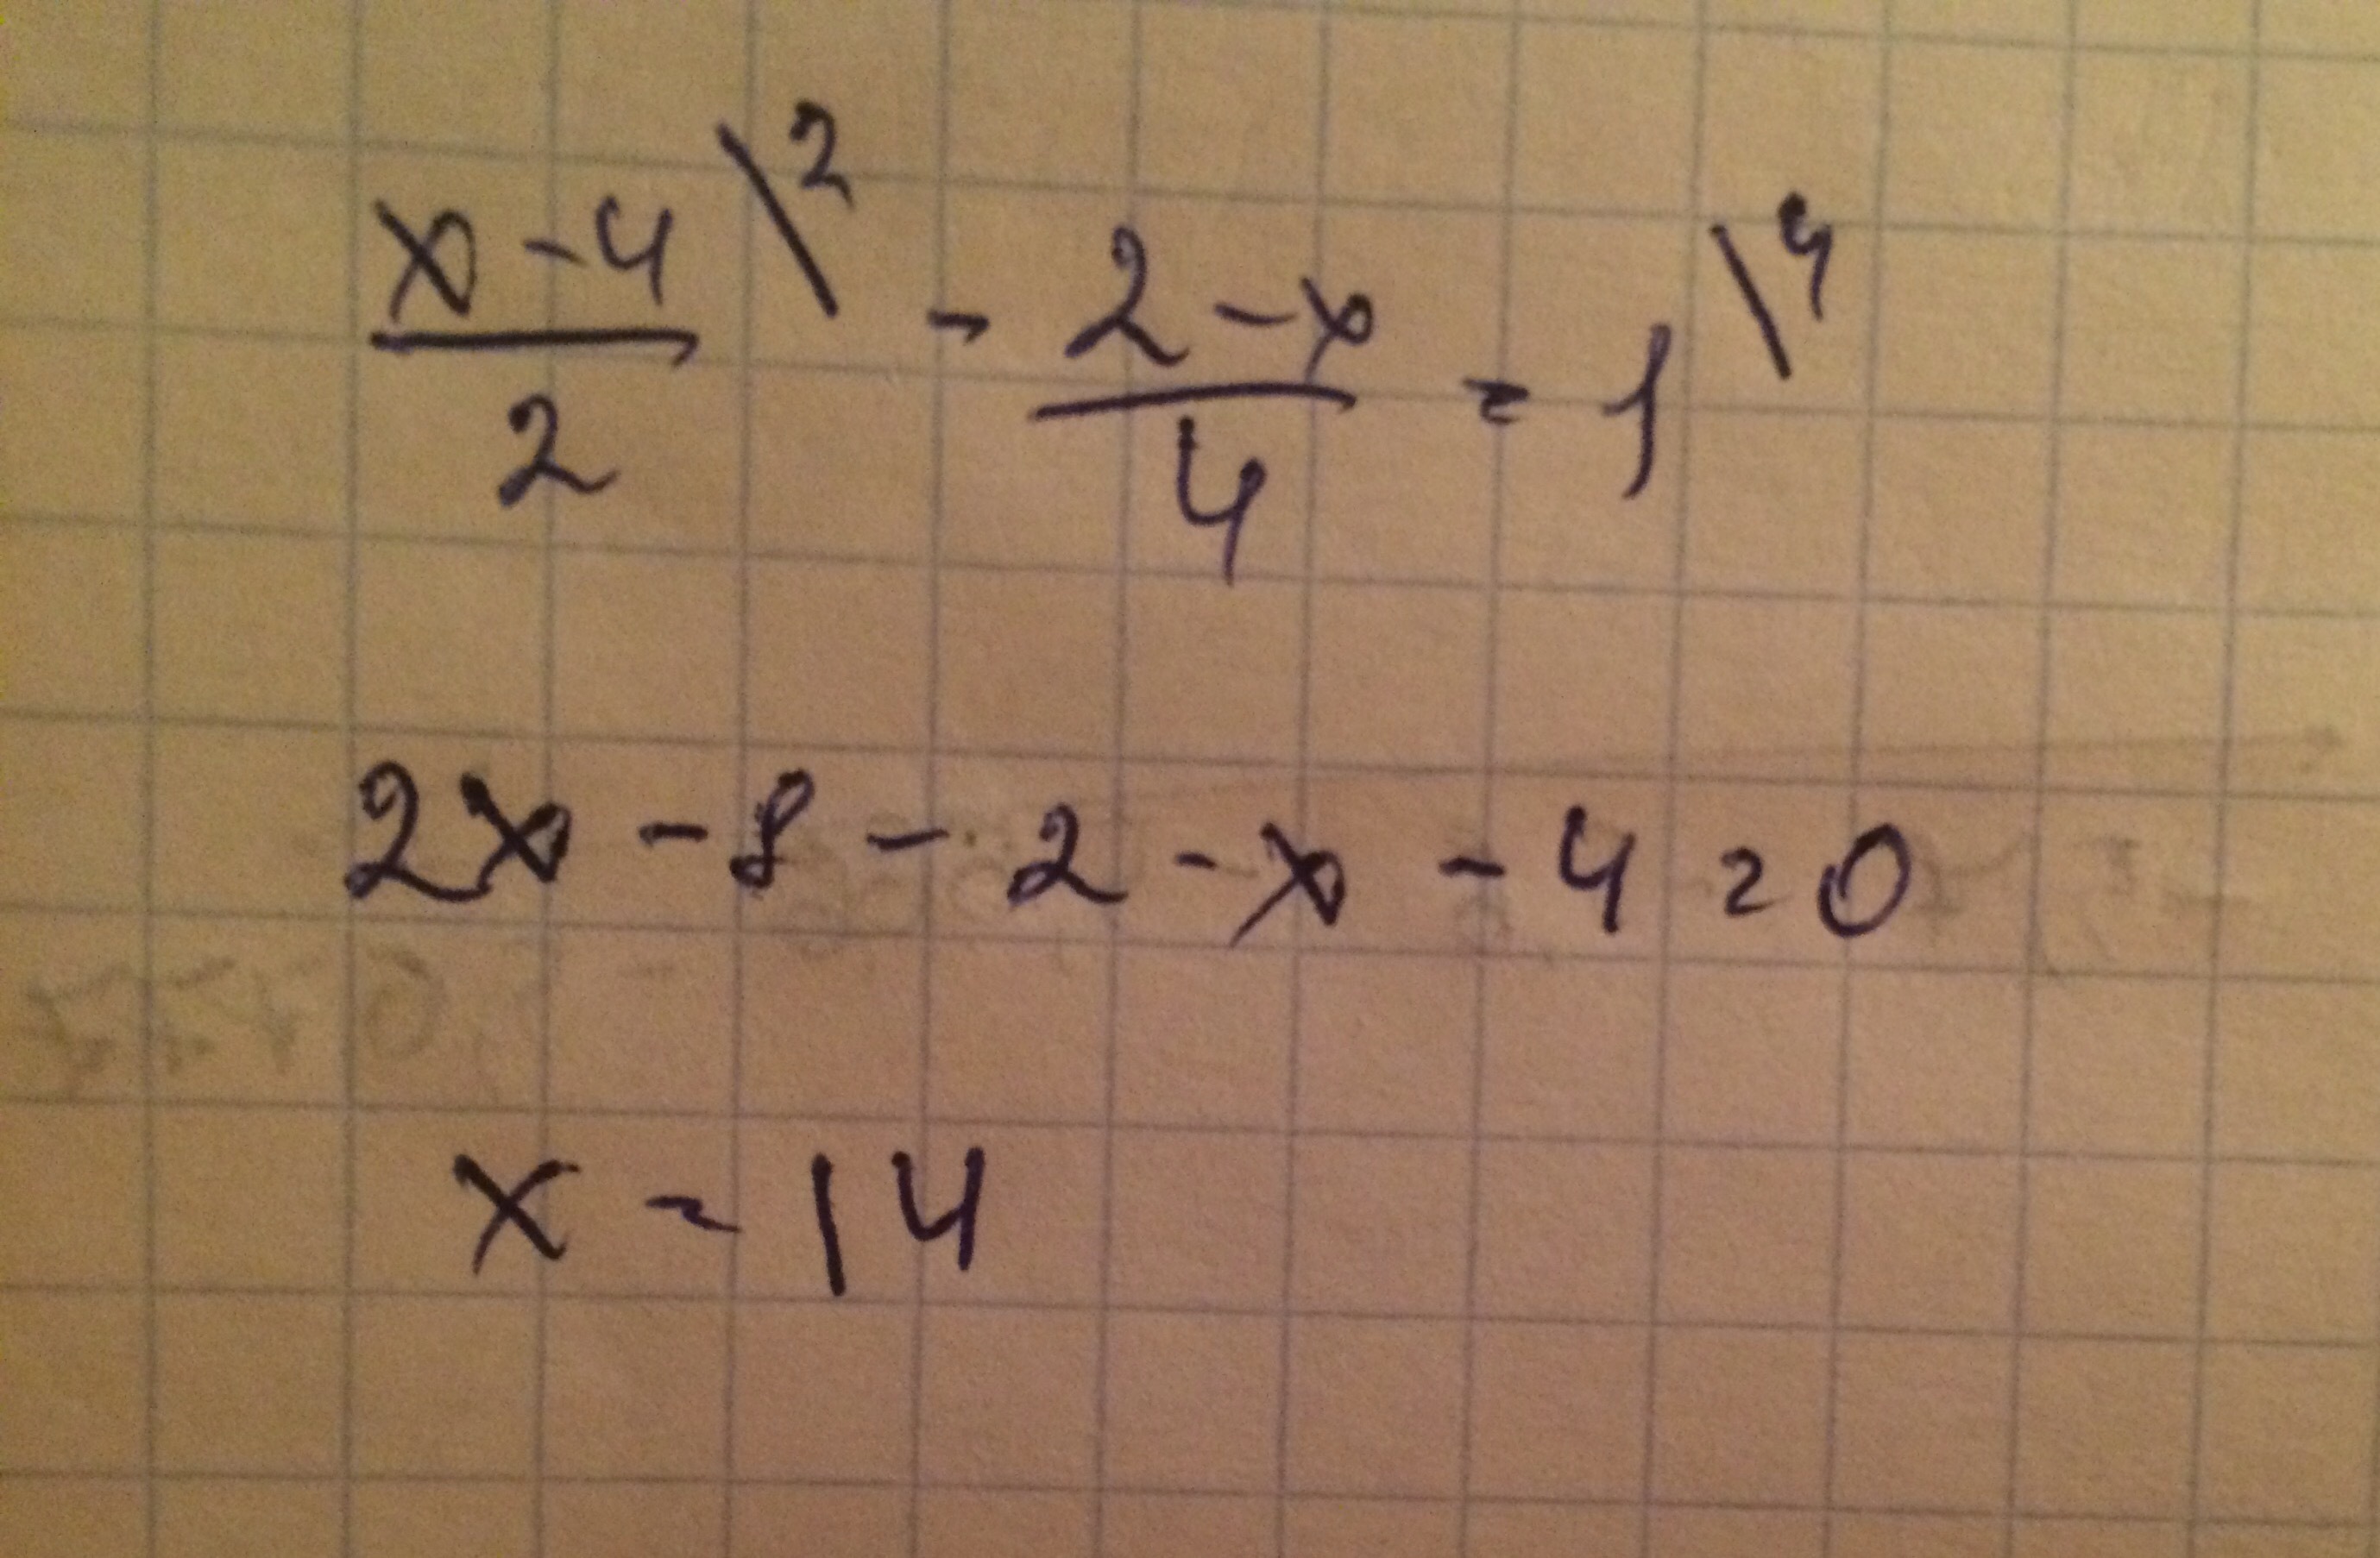 x-4\2 / 2 - 2-x / 4 = 1\4
2x - 8 - 2 - x - 4 = 0
x = 14